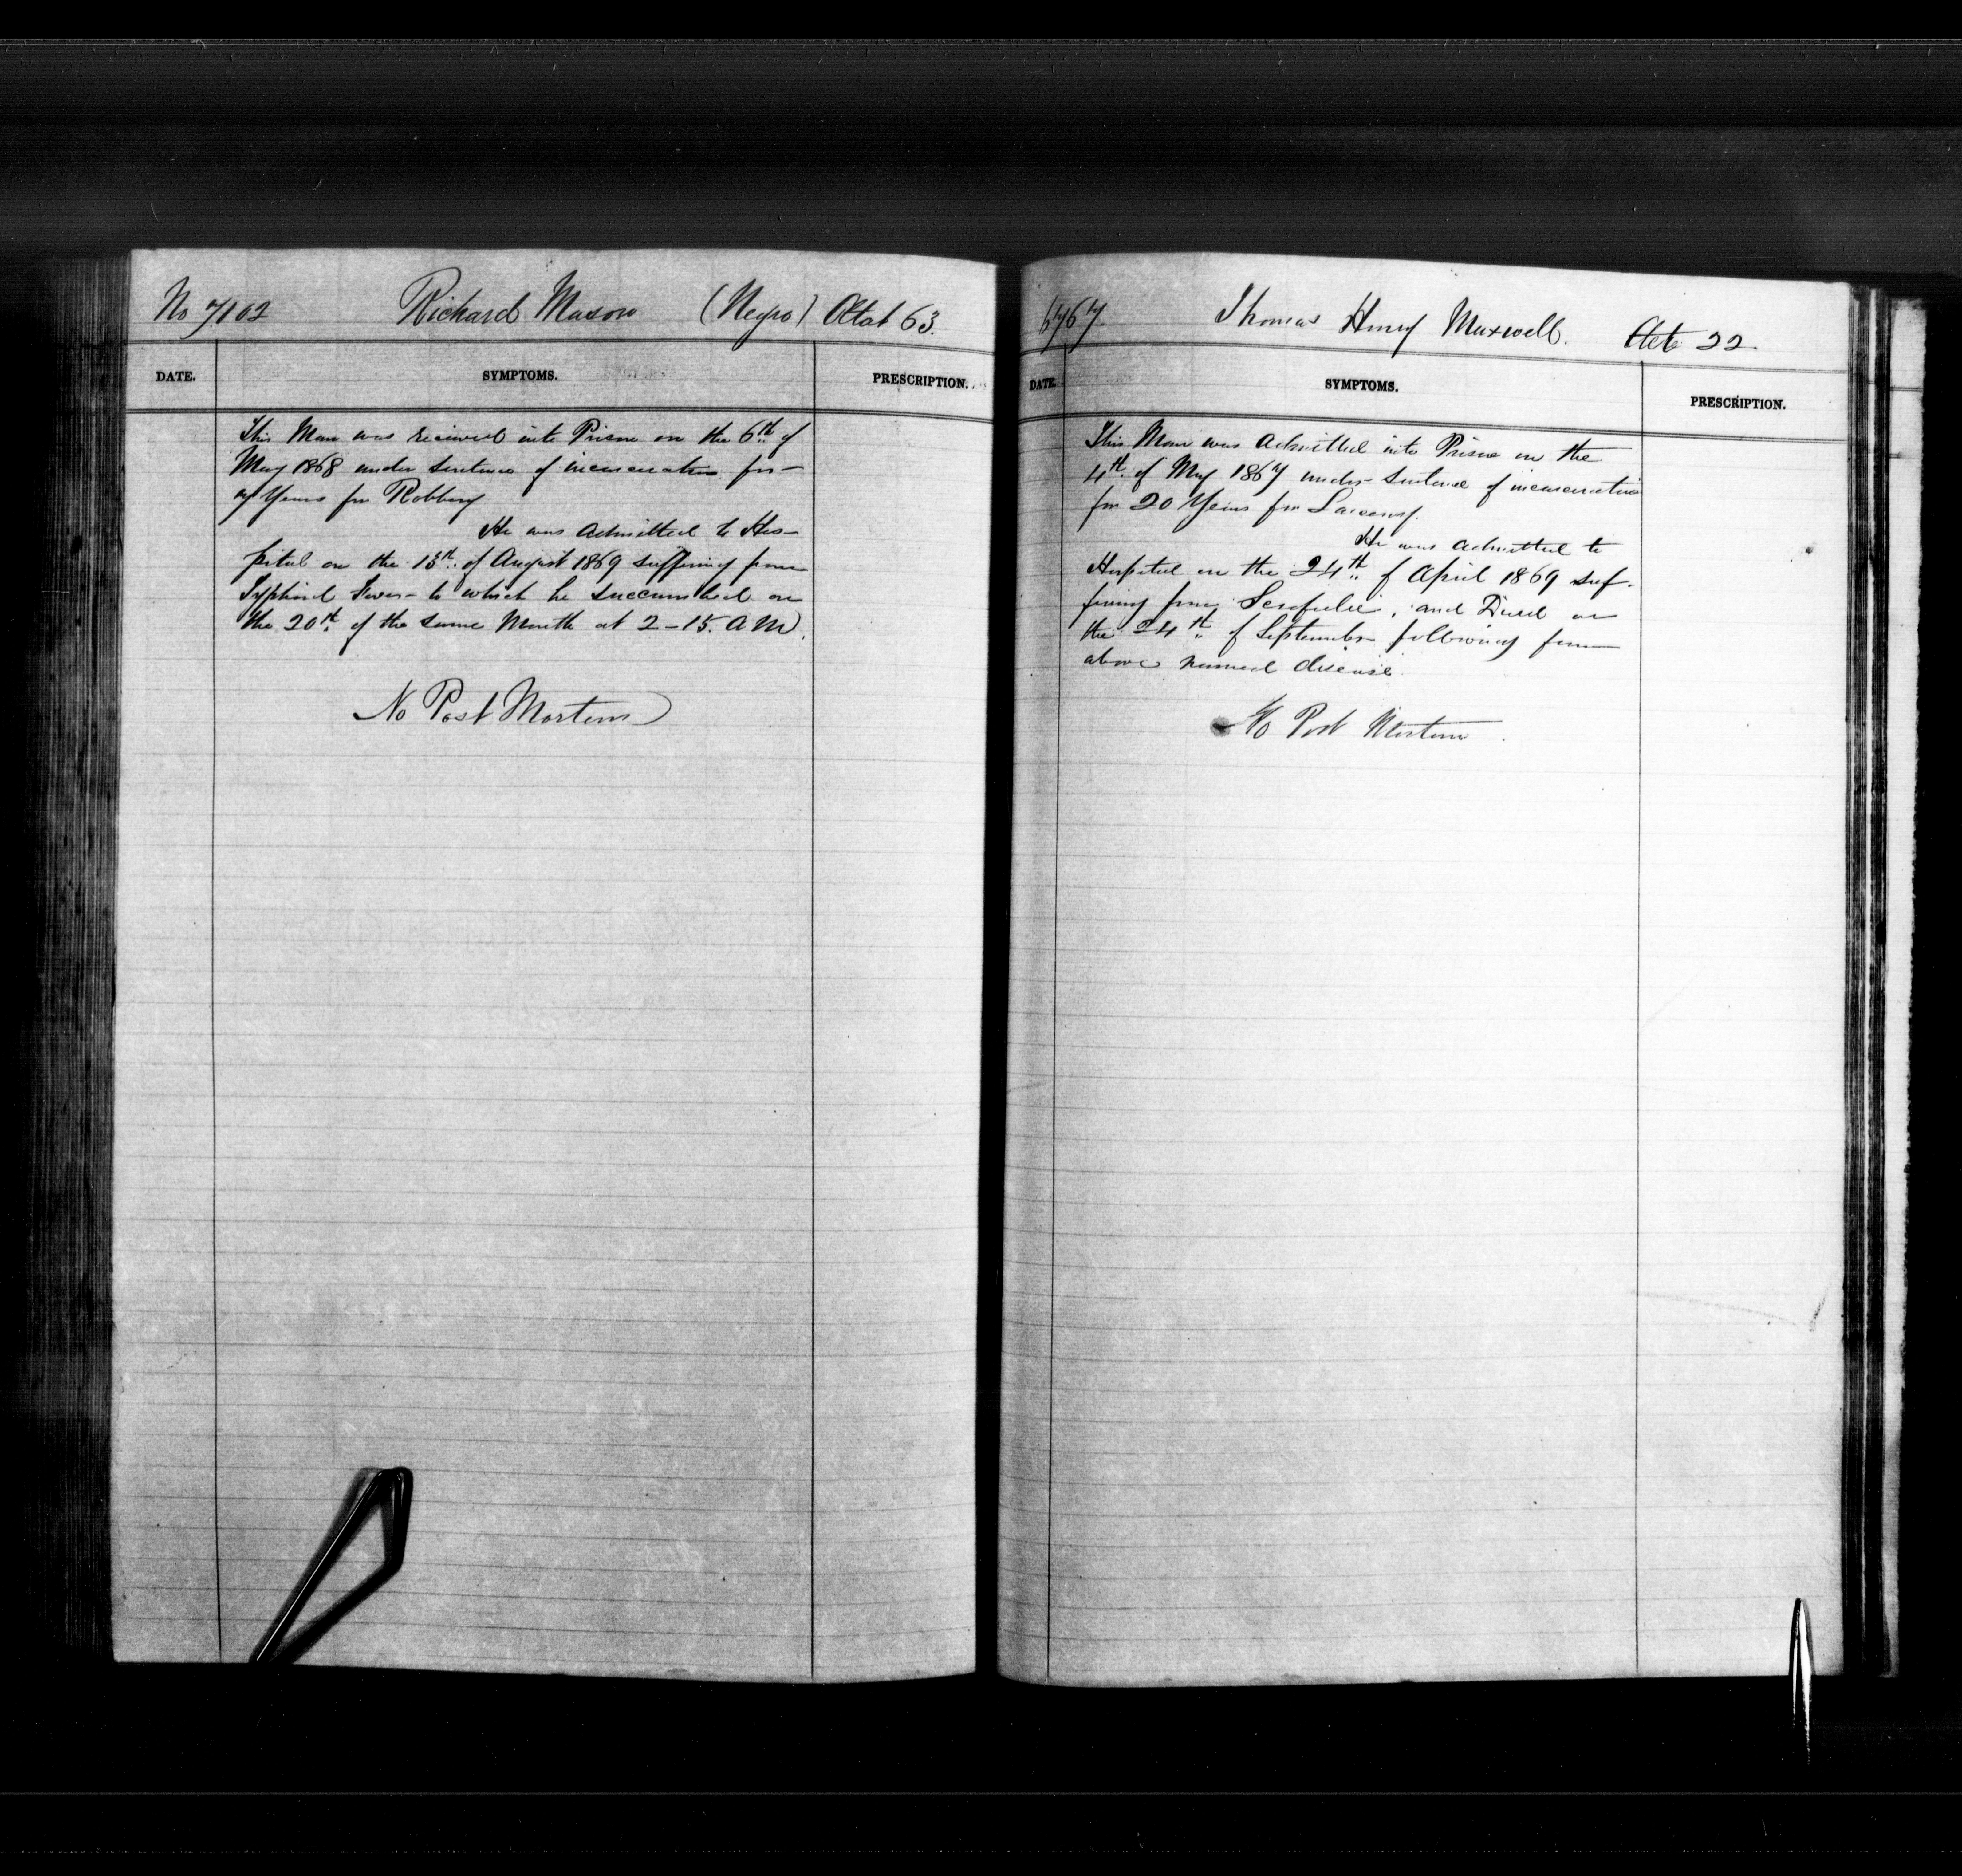 No 7102 Richard Mason (Negro) Ætat 63.
DATE. SYMPTOMS. PRESCRIPTION.
This Man was received into Prison on the 6th of
May 1868 under sentence of incarceration for
7 Years for Robbery
He was admitted to Hos-
pital on the 13th of August 1869 suffering from
Typhoid Fever to which he succumbed on
the 20th of the same Month at 2-15. A M.
No Post Mortem
6767. Thomas Henry Maxwell. Aet 22
DATE. SYMPTOMS. PRESCRIPTION.
This Man was admitted into Prison on the
4th of May 1867 under sentence of incarceration
for 20 Years for Larceny.
He was admitted to
Hospital on the 24th of April 1869 suf-
fering from Scrofulie, and Died on
the 24th of September following from
above named disease.
No Post Mortem.